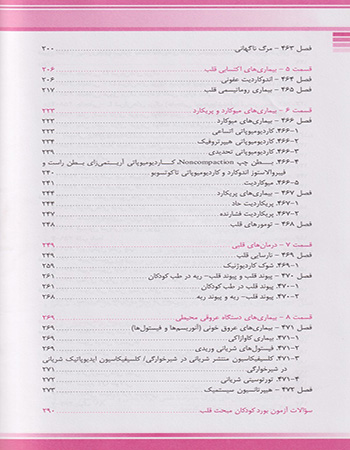 فصل ۴۶۳ – مرگ ناگهانی ۲۰۰
قسمت ۵ – بیماری‌های اکتسابی قلب ۲۰۶
فصل ۴۶۴ – اندوکاردیت عفونی ۲۰۶
فصل ۴۶۵ – بیماری روماتیسمی قلب ۲۱۷
قسمت ۶ – بیماری‌های میوکارد و پریکارد ۲۲۳
فصل ۴۶۶ – بیماری‌های میوکارد ۲۲۳
۴۶۶-۱. کاردیومیوپاتی اتساعی ۲۲۳
۴۶۶-۲. کاردیومیوپاتی هیپرتروفیک
۴۶۶-۳. کاردیومیوپاتی تحدیدی
۴۶۶-۴. بطن چپ Noncompaction، کاردیومیوپاتی آریتمی‌زای بطن راست و
فیبروالاستوز اندوکارد و کاردیومیوپاتی تاکوتسوبو ۲۴۰
۴۶۶-۵. میوکاردیت ۲۴۱
فصل ۴۶۷ – بیماری‌های پریکارد ۲۴۴
۴۶۷-۱. پریکاردیت حاد ۲۴۴
۴۶۷-۲. پریکاردیت فشارنده ۲۴۷
فصل ۴۶۸ – تومورهای قلب ۲۴۸
قسمت ۷ – درمان‌های قلبی ۲۴۹
فصل ۴۶۹ – نارسایی قلب ۲۴۹
۴۶۹-۱. شوک کاردیوژنیک ۲۵۹
فصل ۴۷۰ – پیوند قلب و پیوند قلب- ریه در طب کودکان ۲۶۱
۴۷۰-۱. پیوند قلب در طب کودکان ۲۶۱
۴۷۰-۲. پیوند قلب- ریه و ریه ۲۶۸
قسمت ۸ – بیماری‌های دستگاه عروقی محیطی ۲۶۹
فصل ۴۷۱ – بیماری‌های عروق خونی (آنوریسم‌ها و فیستول‌ها) ۲۶۹
۴۷۱-۱. بیماری کاوازاکی ۲۶۹
۴۷۱-۲. فیستول‌های شریانی وریدی ۲۶۹
۴۷۱-۳. کلسیفیکاسیون منتشر شریانی در شیرخوارگی/ کلسیفیکاسیون ایدیوپاتیک شریانی
در شیرخوارگی ۲۷۱
۴۷۱-۴. تورتوسیتی شریانی ۲۷۲
فصل ۴۷۲ – هیپرتانسیون سیستمیک ۲۷۳
سؤالات آزمون بورد کودکان مبحث قلب ۲۹۰